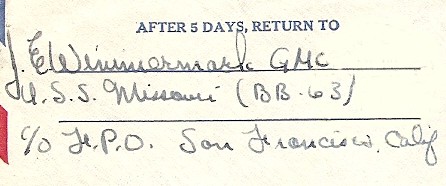 AFTER 5 DAYS, RETURN TO
J. E. Wimmermark GMC
U.S.S. Missouri (BB-63)
c/o F.P.O. San Francisco, Calif